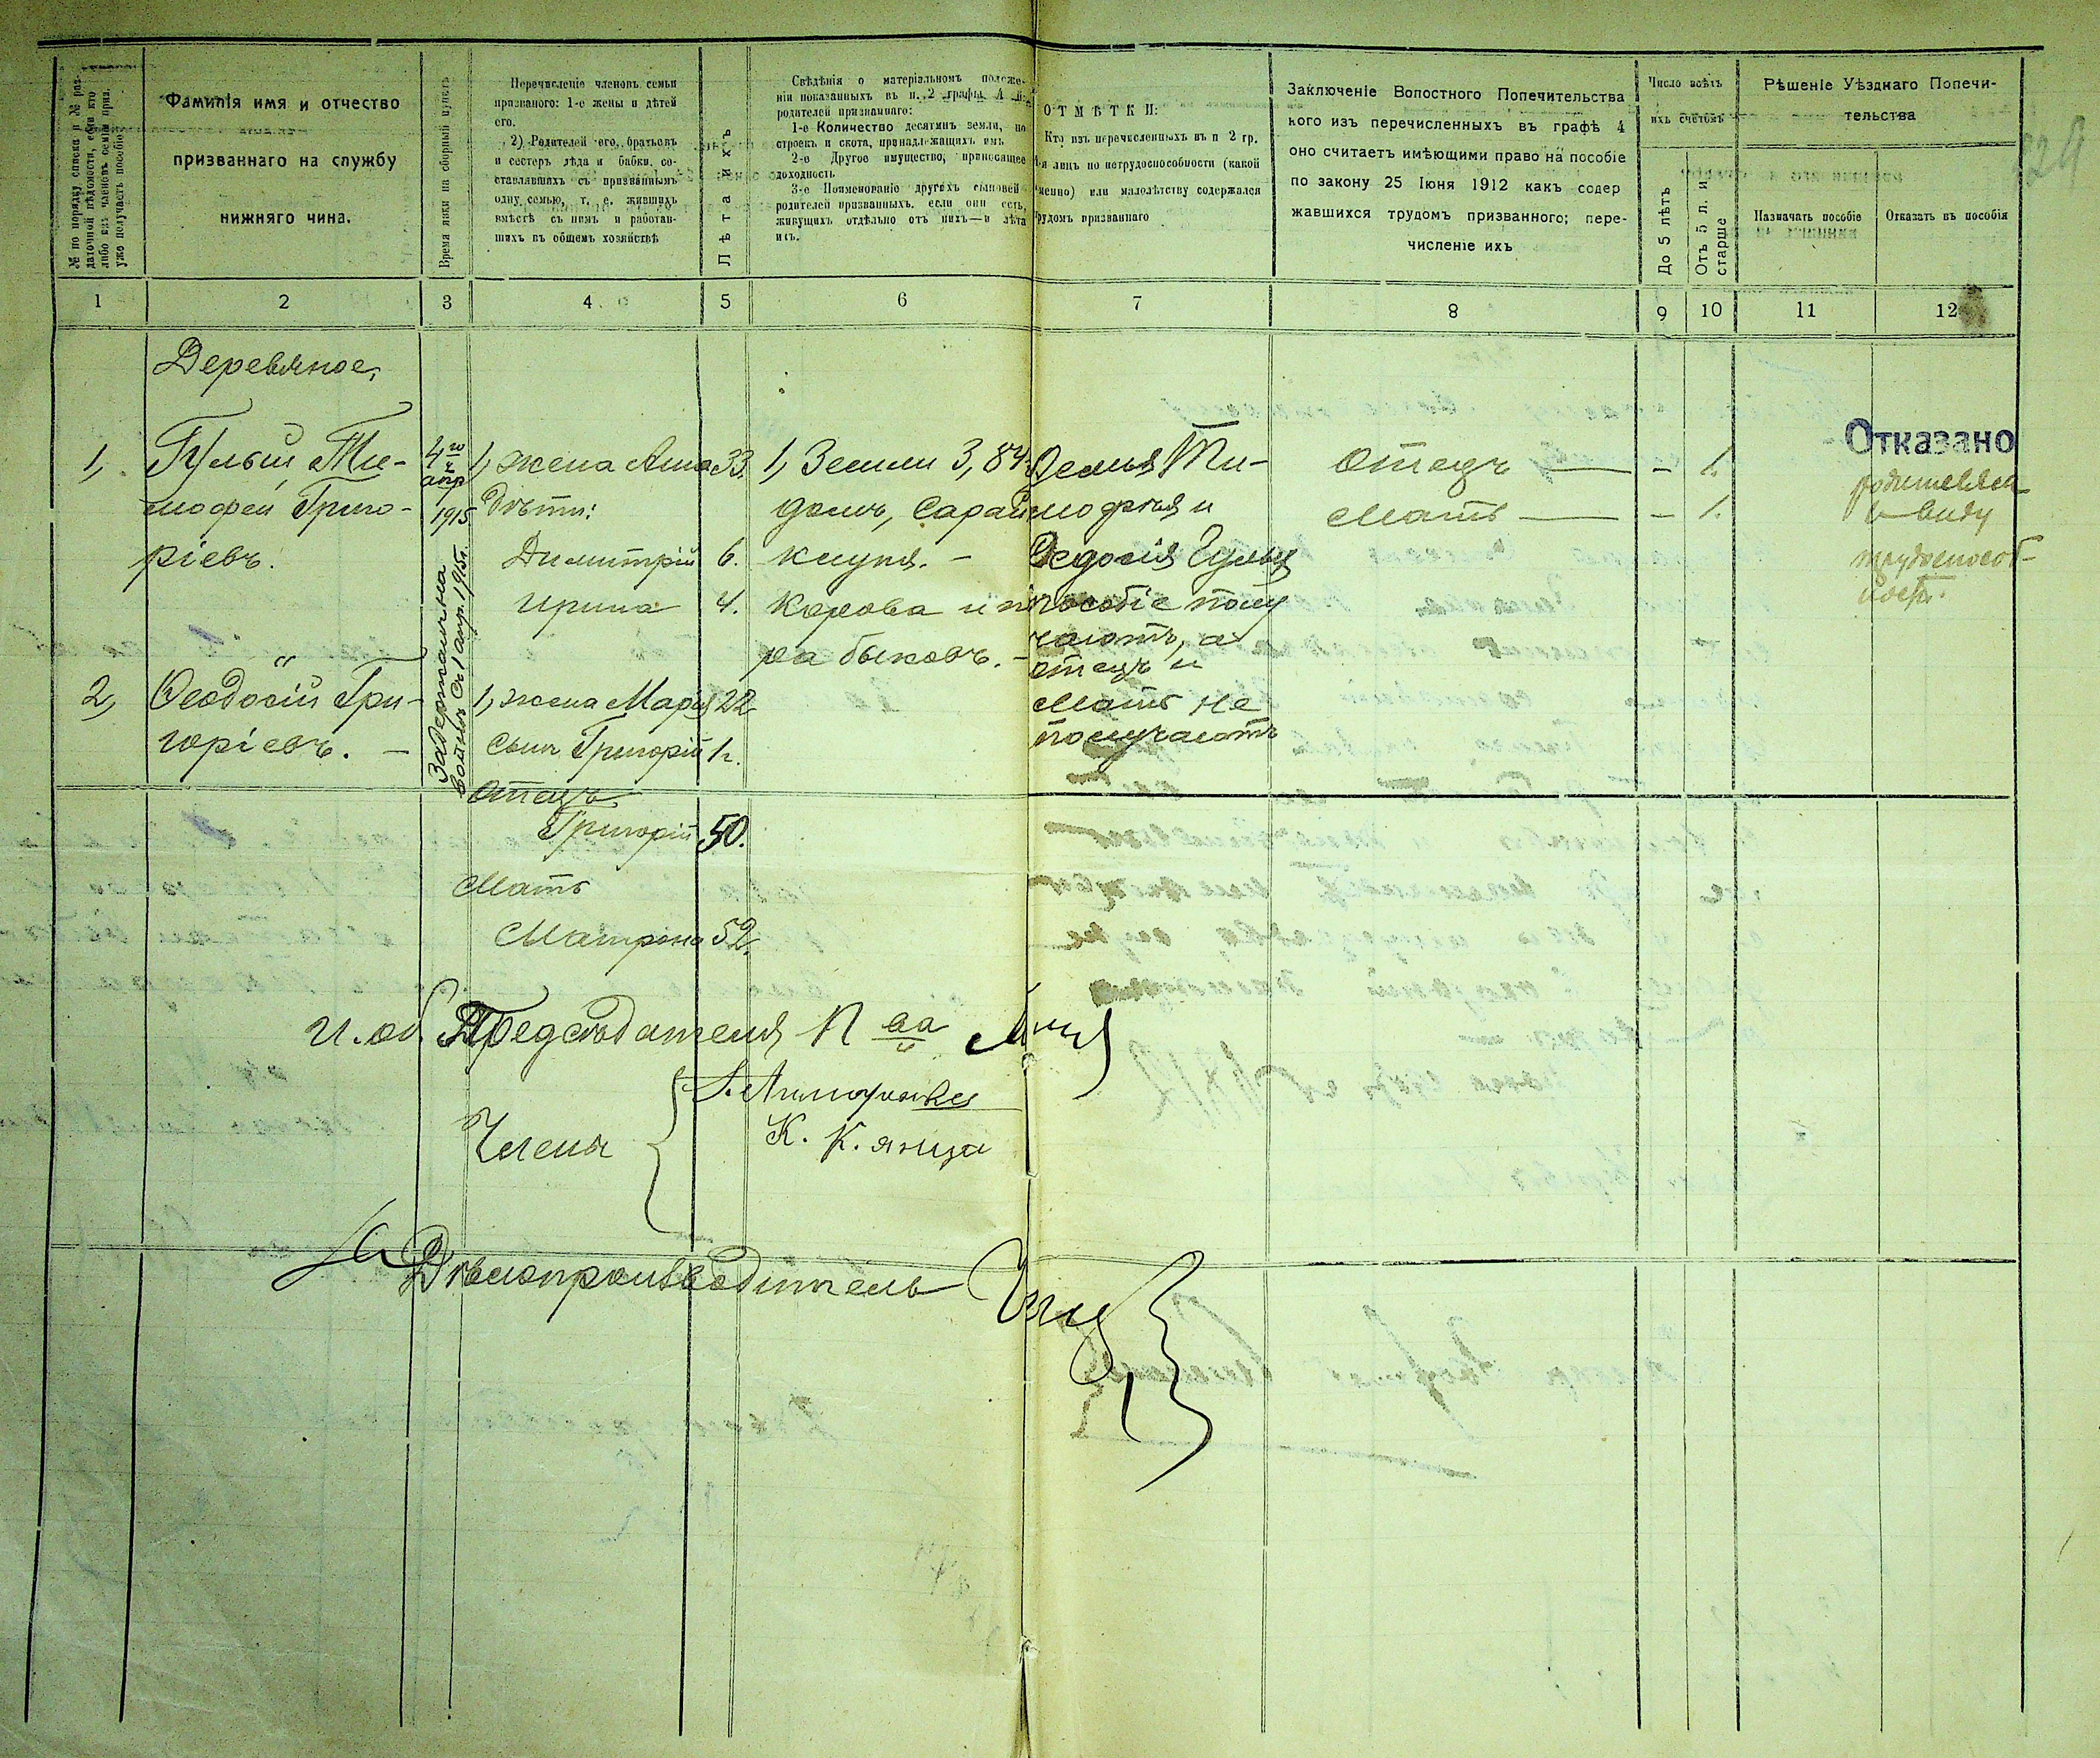 № по порядку списка и № раз-
даточной вѣдомости, если кто
либо изъ членовъ семьи приз.
уже получаетъ пособіе
Фамилія имя и отчество
призваннаго на службу
нижняго чина.
Время явки на сборный пунктъ
Перечисленіе членовъ семьи
призваного: 1-е жены и дѣтей
его.
2) Родителей его, братьевъ
и сестеръ дѣда и бабки, со-
ставлявшихъ съ призваннымъ
одну семью, т. е. жившихъ
вмѣстѣ съ нимъ и работав-
шихъ въ общемъ хозяйствѣ
Лѣта ихъ
Свѣдѣнія о матеріальномъ положе-
ніи показанныхъ въ п. 2 графы 4
родителей призваннаго:
1-е Количество десятинъ земли, по
строекъ и скота, принадлежащихъ имъ
2-е Другое имущество, приносящее
доходность
3-е Поименованіе другихъ сыновей
родителей призванныхъ, если они есть,
живущихъ отдѣльно отъ нихъ—и лѣта
ихъ.
ОТМѢТКИ:
Кто изъ перечисленныхъ въ п 2 гр.
4-й лицъ по нетрудоспособности (какой
именно) или малолѣтству содержался
трудомъ призваннаго
Заключеніе Волостного Попечительства
кого изъ перечисленныхъ въ графѣ 4
оно считаетъ имѣющими право на пособіе
по закону 25 Іюня 1912 какъ содер
жавшихся трудомъ призванного; пере-
численіе ихъ
Число всѣхъ
ихъ счетомъ
До 5 лѣтъ
Отъ 5 л. и
старше
Рѣшеніе Уѣзднаго Попечи-
тельства
Назначать пособіе
Отказать въ пособіи
1 2 3 4 5 6 7 8 9 10 11 12
Деревяное,
1, Гулый Ти-
мофей Григо-
ріевъ.
4го
апр
1915
1, жена Анна 33.
Дѣти:
Димитрій 6.
Ирина 4.
1, Земли 3,84
домъ, сарай
клуня. –
Корова и па
ра быковъ. –
Семья Ти-
мофея и
Федосія Гулыя
пособіе полу
чаютъ, а
отецъ и
мать не
получаютъ
Отецъ — – 1.
Мать — – 1.
Отказано
родителям
в виду
трудоспособ-
ности.
2, " Феодосій Гри-
горіевъ. –
Задержанъ на
войнѣ съ 1 апр. 1915г.
1, жена Марія 22
сынъ Григорій 1г.
Отецъ
Григорій 50.
Мать
Матрона 52.
И. об. Предсѣдателя П ва
Члены
К. К.
Дѣлопроизводитель